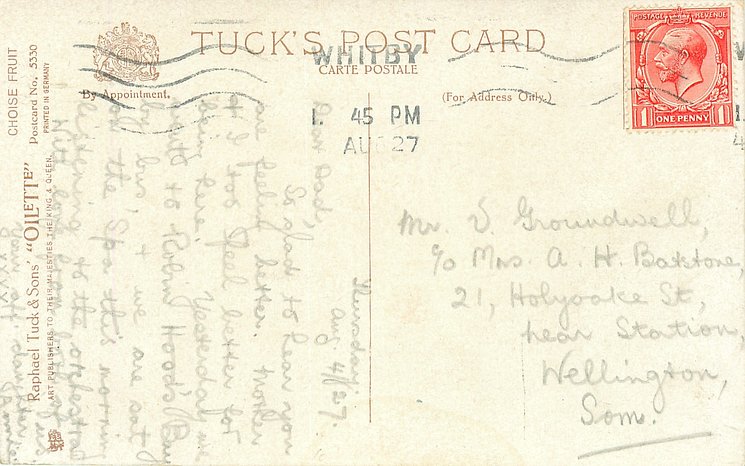 TUCK'S POST CARD
CARTE POSTALE
By Appointment.
(For Address Only.)
WHITBY
1. 45 PM
AUG 27
POSTAGE REVENUE
1 ONE PENNY 1
CHOISE FRUIT
Postcard No. 5330
PRINTED IN GERMANY
Raphael Tuck & Sons' "OILETTE"
ART PUBLISHERS TO THEIR MAJESTIES THE KING & QUEEN.
Thursday,
Aug. 4/27.
Dear Dad,
So glad to hear you
are feeling better. Mother
& I too feel better for
being here. Yesterday we
went to Robin Hood's Bay
by bus, & we are sat
on the Spa this morning
listening to the orchestra
love from both of us
your aff. daughter
Mr. V. Groundwell,
c/o Mrs. A. H. Batstone,
21, Holyoake St,
near Station,
Wellington,
Som.